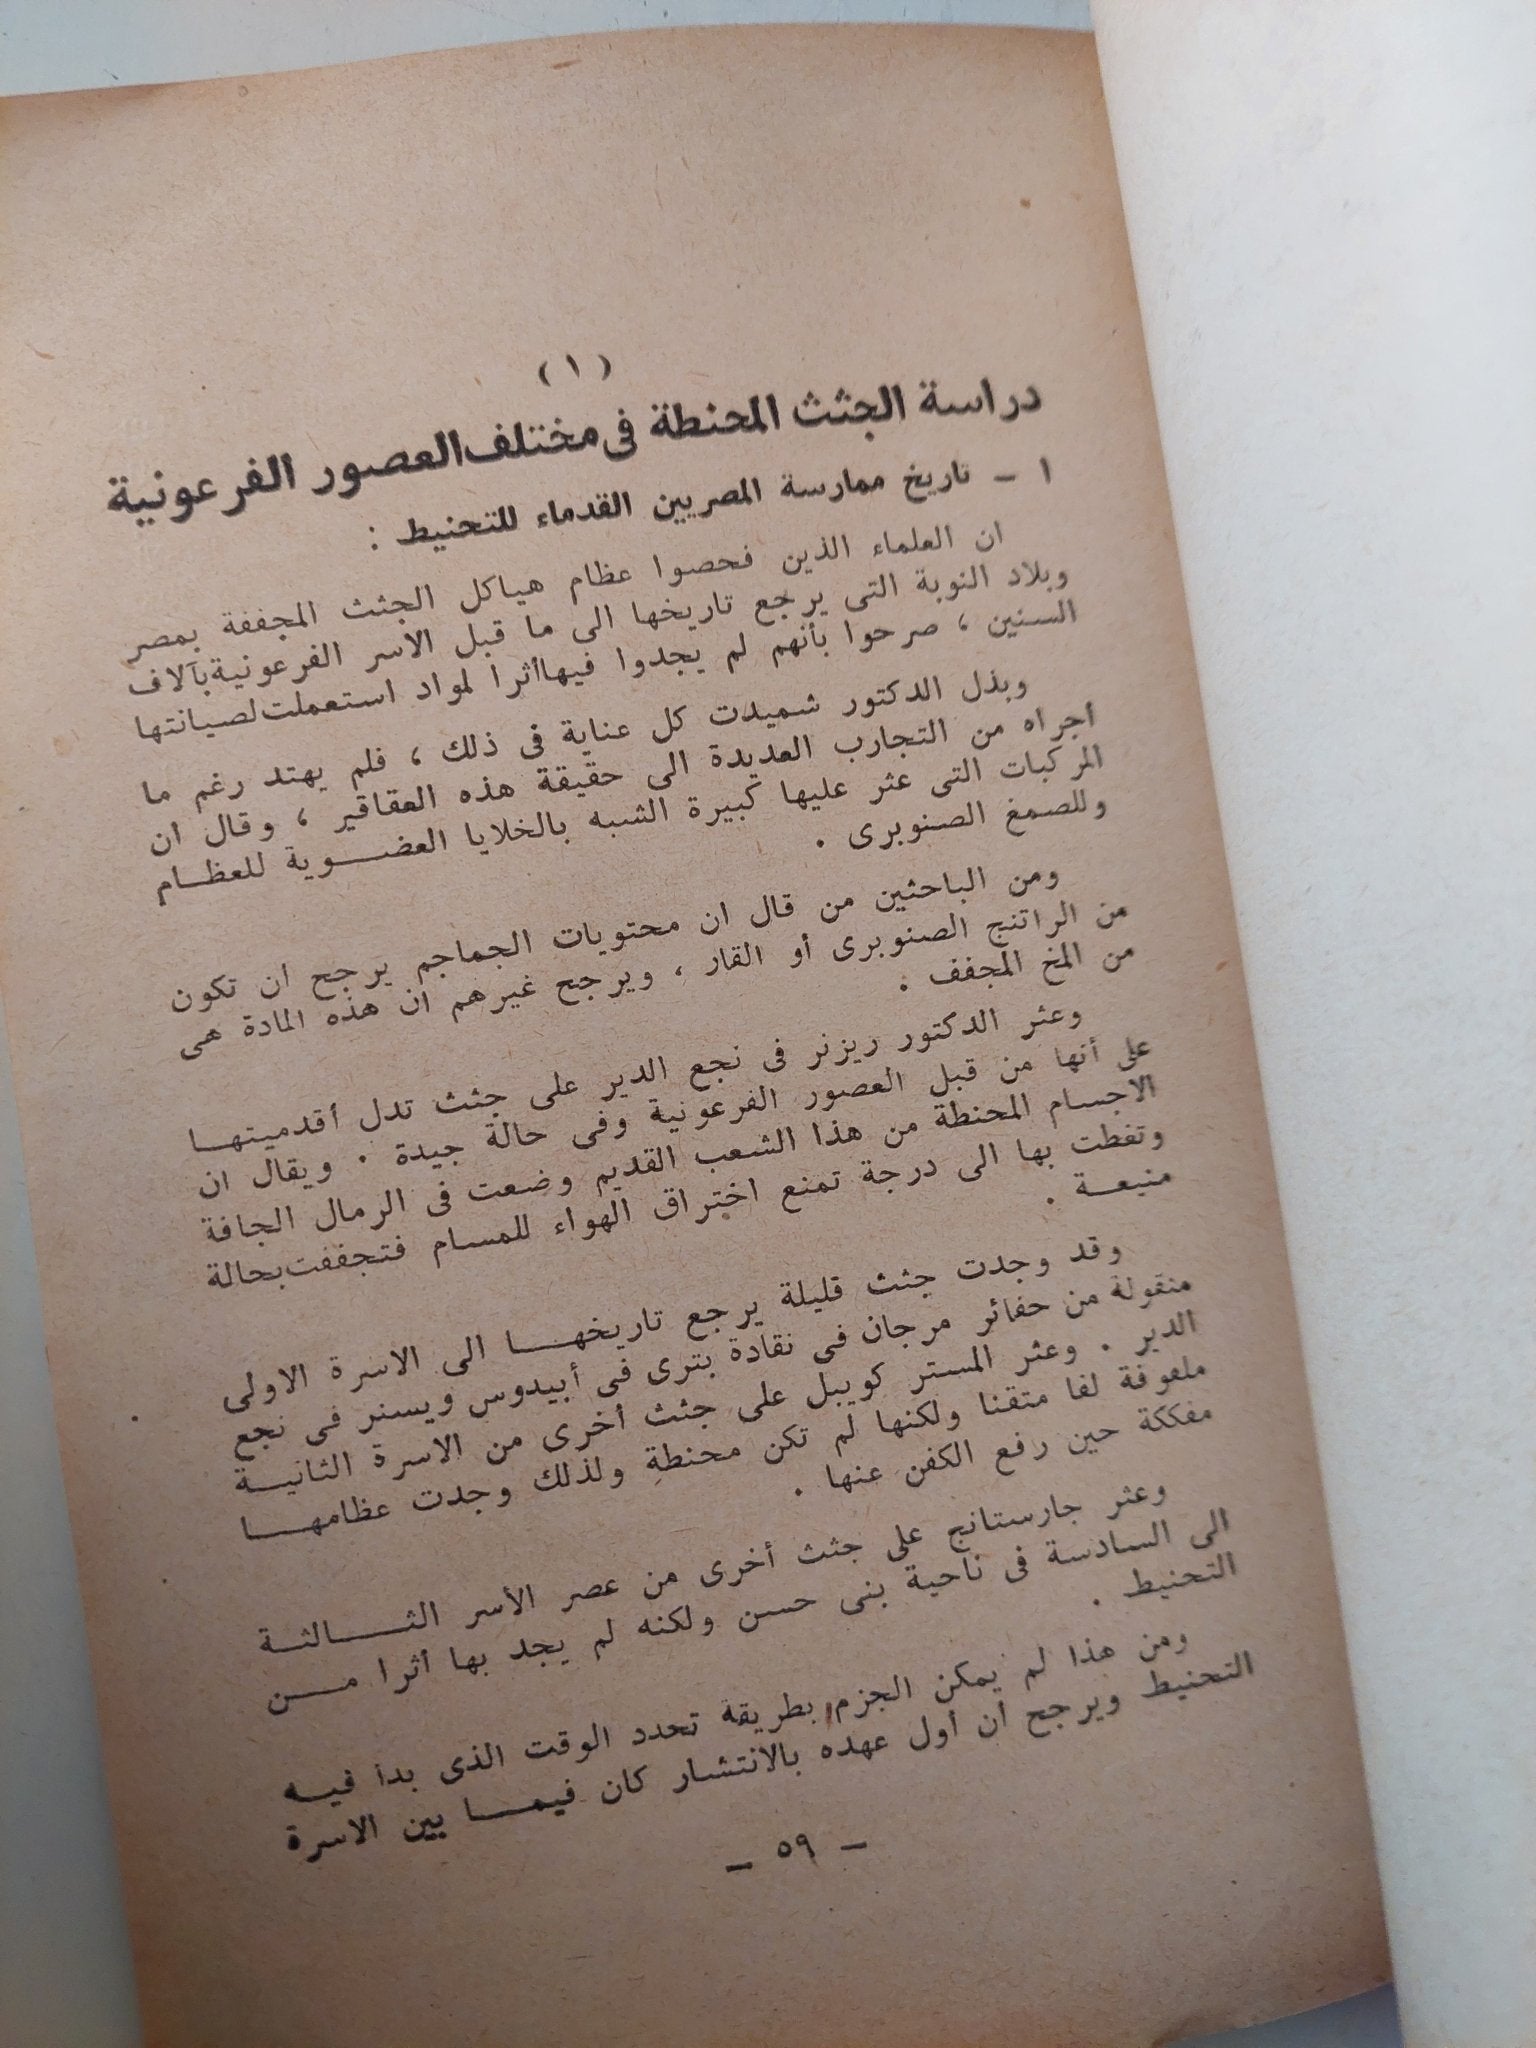 ( ١ )
دراسة الجثث المحنطة فى مختلف العصور الفرعونية
١ – تاريخ ممارسة المصريين القدماء للتحنيط :
ان العلماء الذين فحصوا عظام هياكل الجثث المجففة بمصر
وبلاد النوبة التى يرجع تاريخها الى ما قبل الاسر الفرعونية بآلاف
السنين ، صرحوا بأنهم لم يجدوا فيها أثرا لمواد استعملت لصيانتها
وبذل الدكتور شميدت كل عناية فى ذلك ، فلم يهتد رغم ما
أجراه من التجارب العديدة الى حقيقة هذه العقاقير ، وقال ان
المركبات التى عثر عليها كبيرة الشبه بالخلايا العضوية للعظام
وللصمغ الصنوبرى .
ومن الباحثين من قال ان محتويات الجماجم يرجح ان تكون
من الراتنج الصنوبرى أو القار ، ويرجح غيرهم ان هذه المادة هى
من المخ المجفف .
وعثر الدكتور ريزنر فى نجع الدير على جثث تدل أقدميتها
على أنها من قبل العصور الفرعونية وفى حالة جيدة . ويقال ان
الاجسام المحنطة من هذا الشعب القديم وضعت فى الرمال الجافة
وتغطت بها الى درجة تمنع اختراق الهواء للمسام فتجففت بحالة
منيعة .
وقد وجدت جثث قليلة يرجع تاريخها الى الاسرة الاولى
منقولة من حفائر مرجان فى نقادة بترى فى أبيدوس ويسنر فى نجع
الدير . وعثر المستر كويبل على جثث أخرى من الاسرة الثانية
ملفوفة لفا متقنا ولكنها لم تكن محنطة ولذلك وجدت عظامها
مفككة حين رفع الكفن عنها .
وعثر جارستانج على جثث أخرى من عصر الأسر الثالثة
الى السادسة فى ناحية بنى حسن ولكنه لم يجد بها أثرا من
التحنيط .
ومن هذا لم يمكن الجزم بطريقة تحدد الوقت الذى بدأ فيه
التحنيط ويرجح أن أول عهده بالانتشار كان فيما بين الاسرة
– ٥٩ –